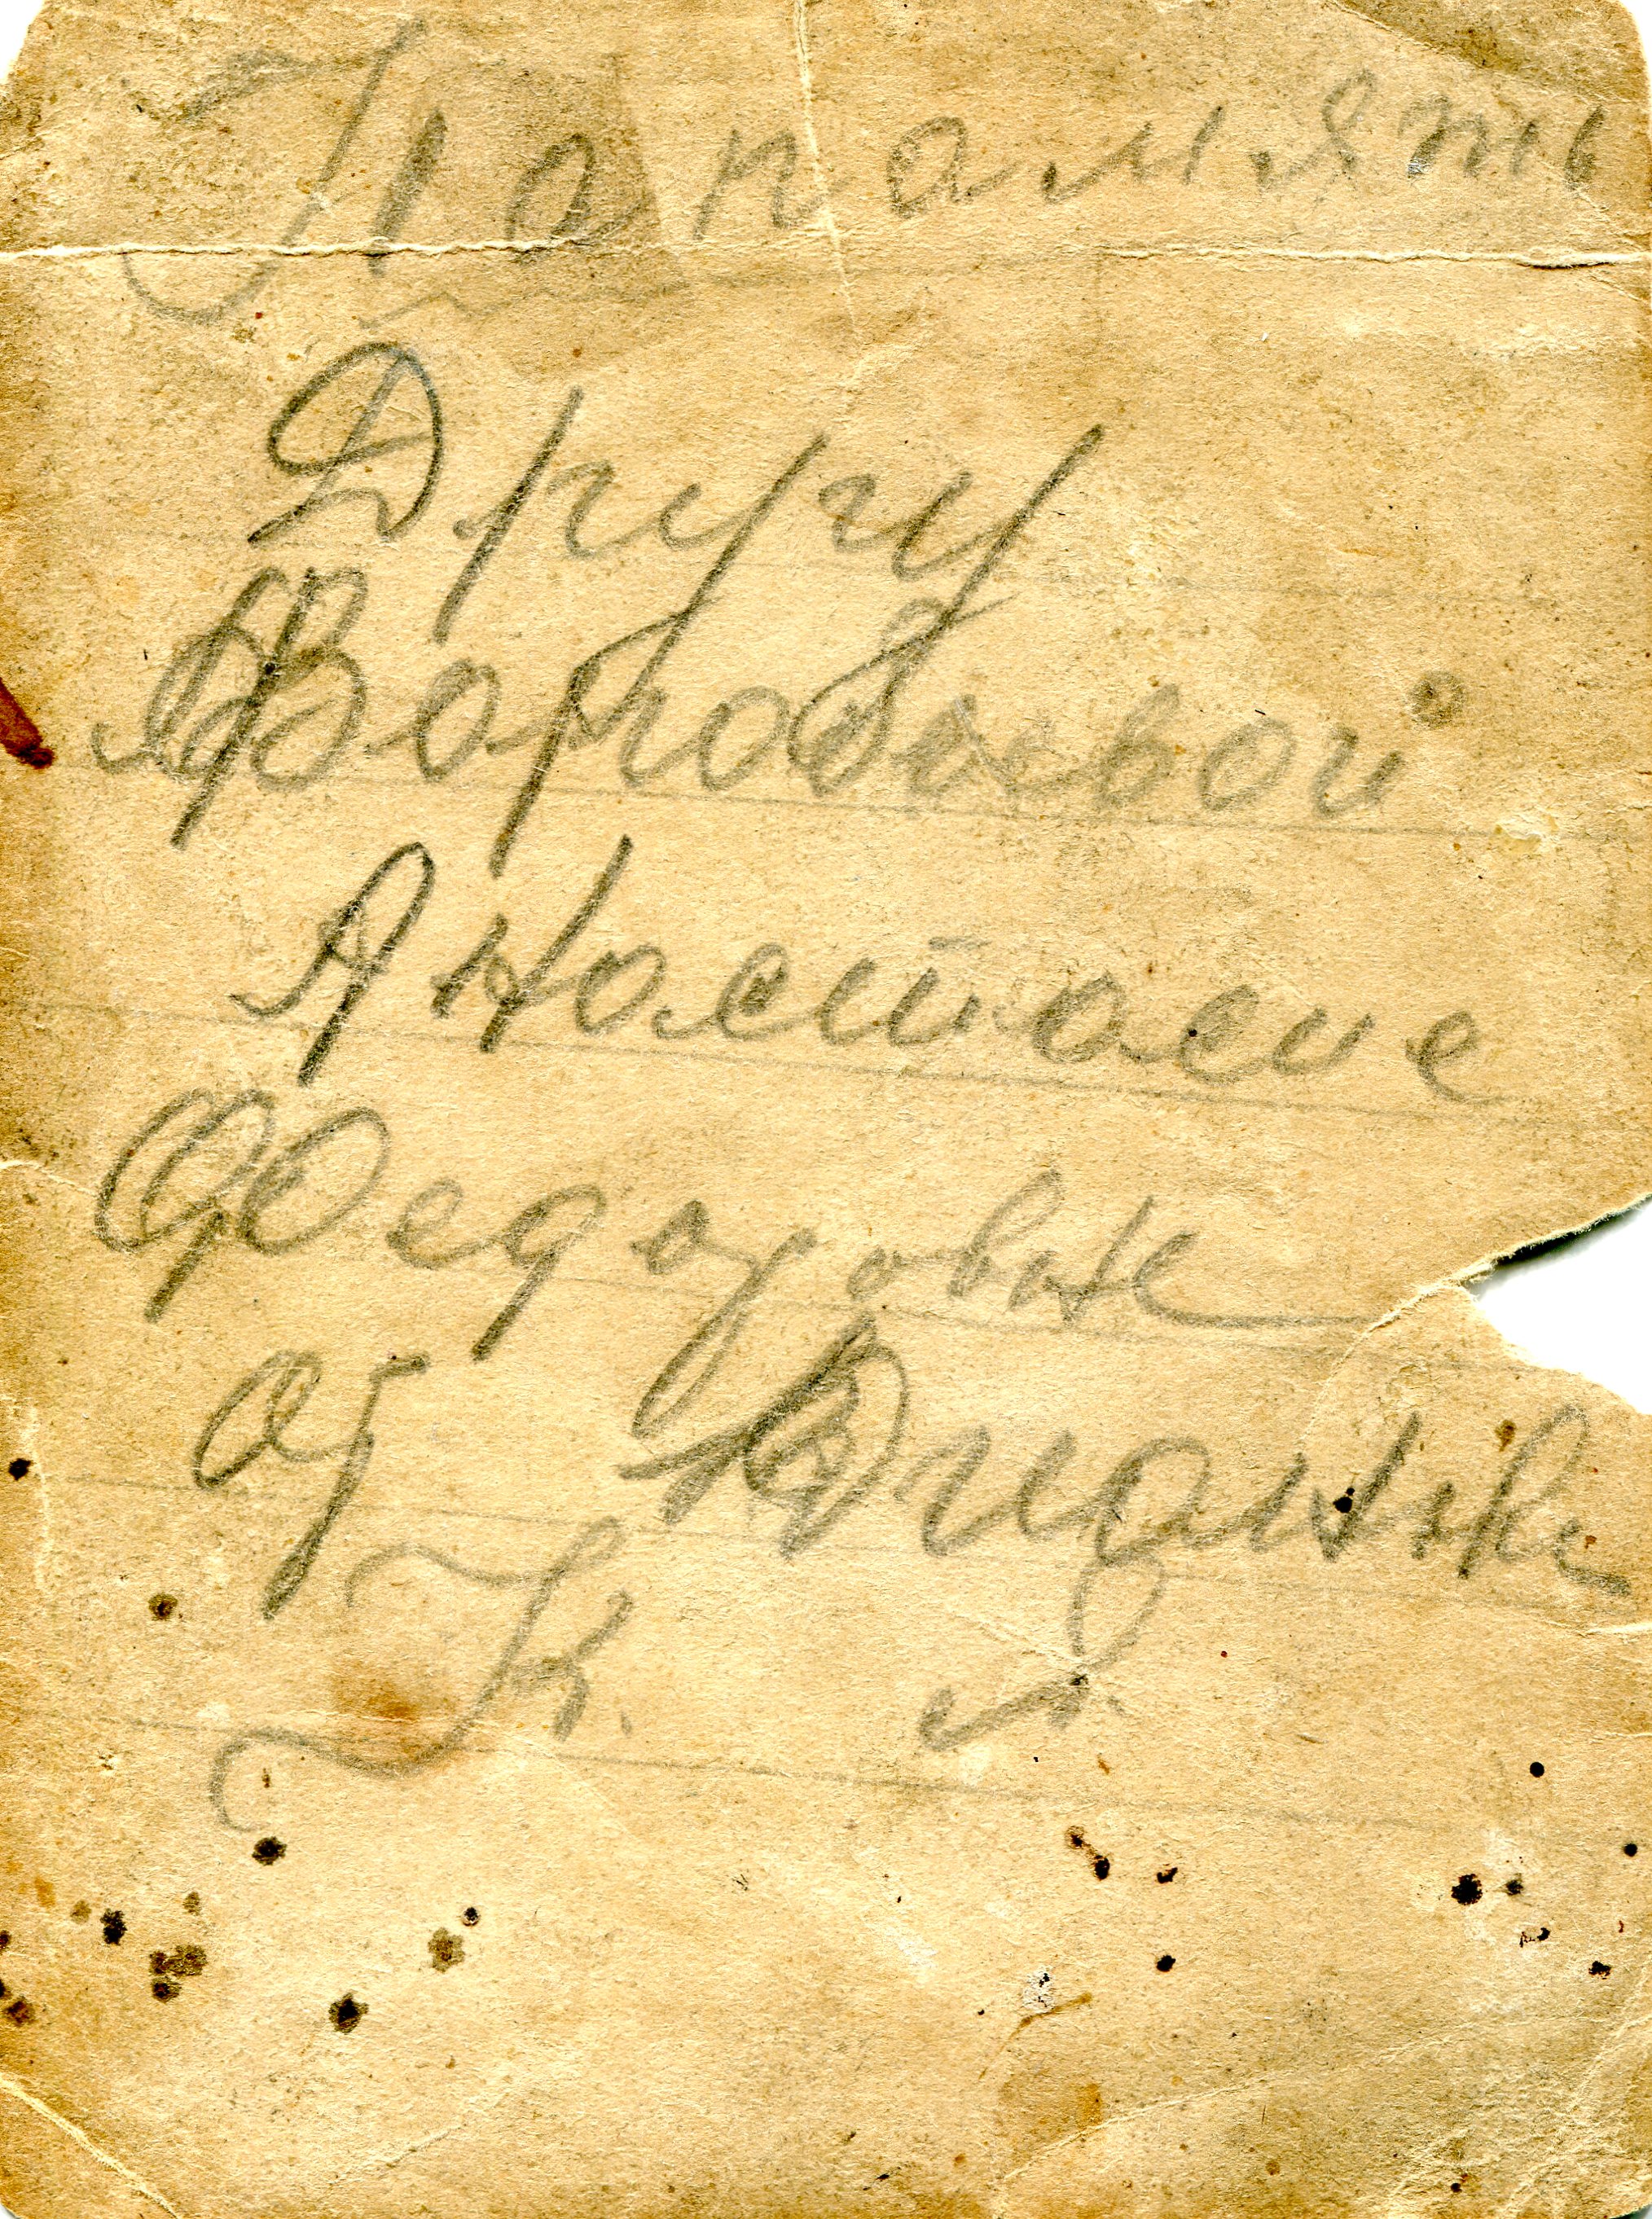 По памяти
Другу
Воробьевой
Анастасие
Федоровне
от
К. А.